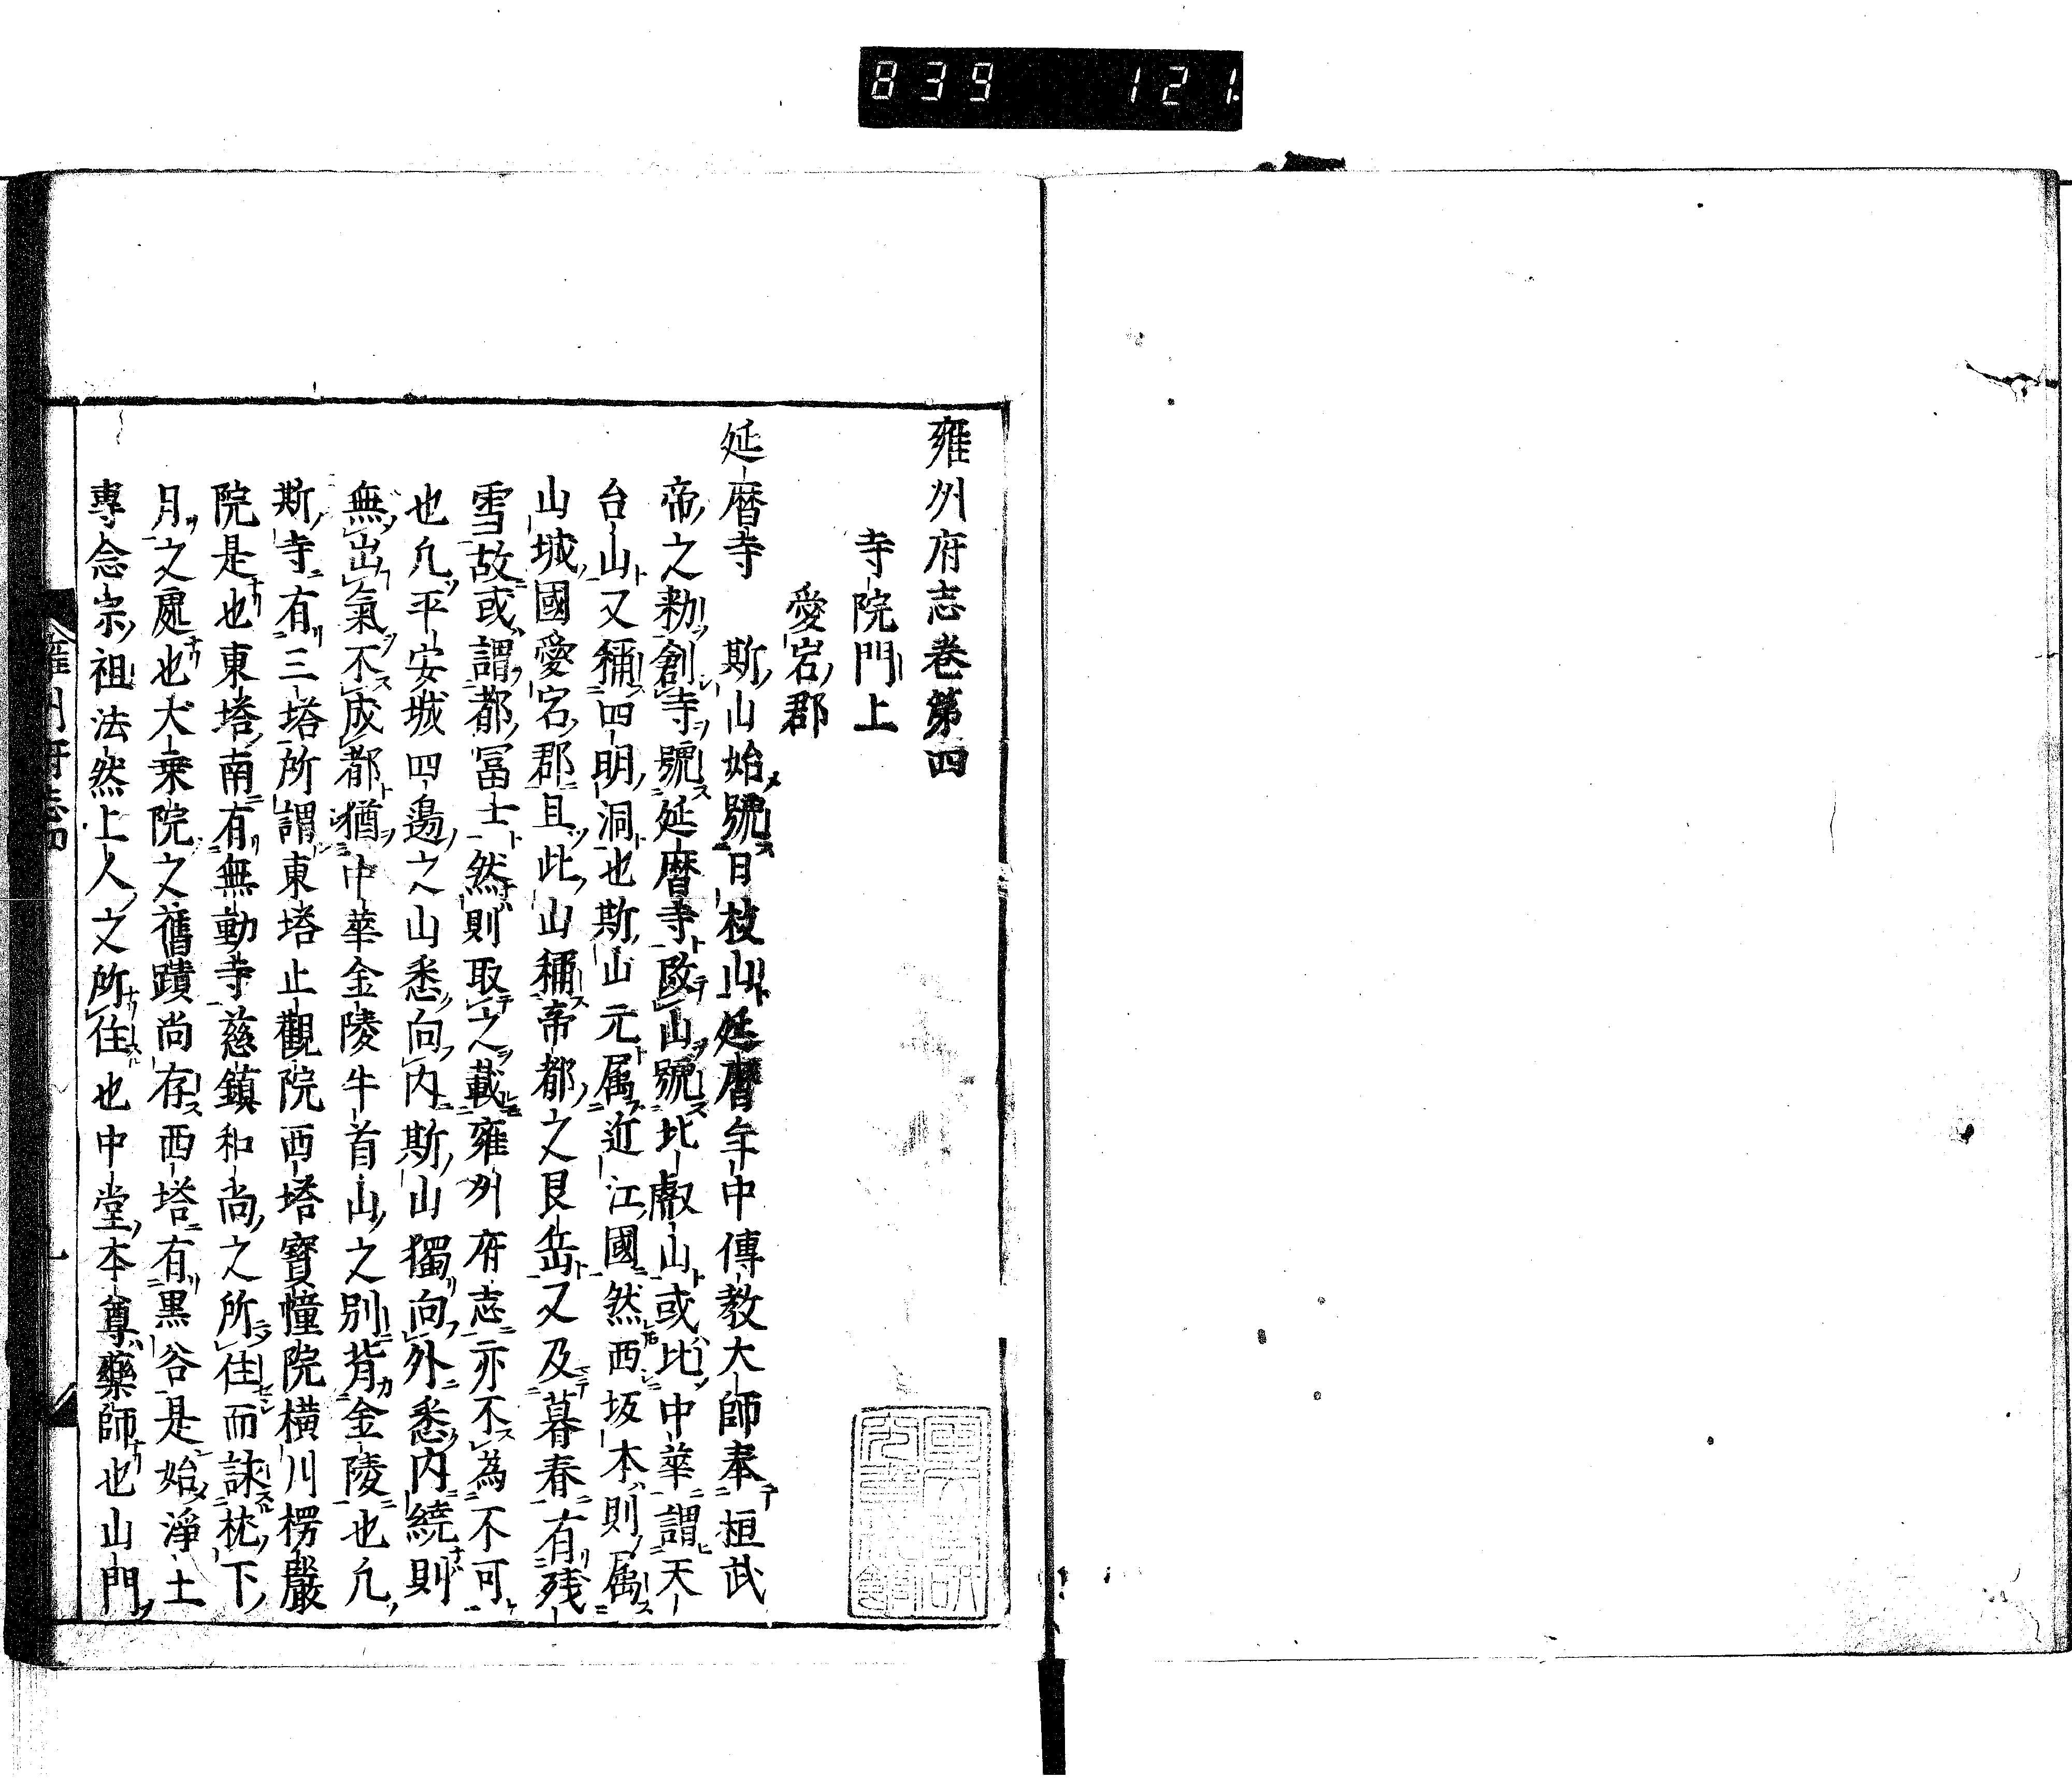 839 121
雍州府志巻第四
寺院門上
愛宕郡
延暦寺 斯山始號日枝山延暦年中傳教大師奉桓武
帝之勅創寺號延暦寺改山號比叡山或比中華謂天
台山又稱四明洞也斯山元属近江國然西坂本則属
山城國愛宕郡且此山稱帝都之艮岳又及暮春有残
雪故或謂都冨士然則取之載雍州府志亦不為不可
也凢平安城四邊之山悉向内斯山獨向外悉内繞則
無出氣不成都猶中華金陵牛首山之別背金陵也凢
斯寺有三塔所謂東塔止觀院西塔寶幢院横川楞嚴
院是也東塔南有無動寺慈鎮和尚之所住而詠枕下
月之處也大乗院之舊蹟尚存西塔有黒谷是始淨土
專念宗祖法然上人之所住也中堂本尊藥師也山門
雍州府志四